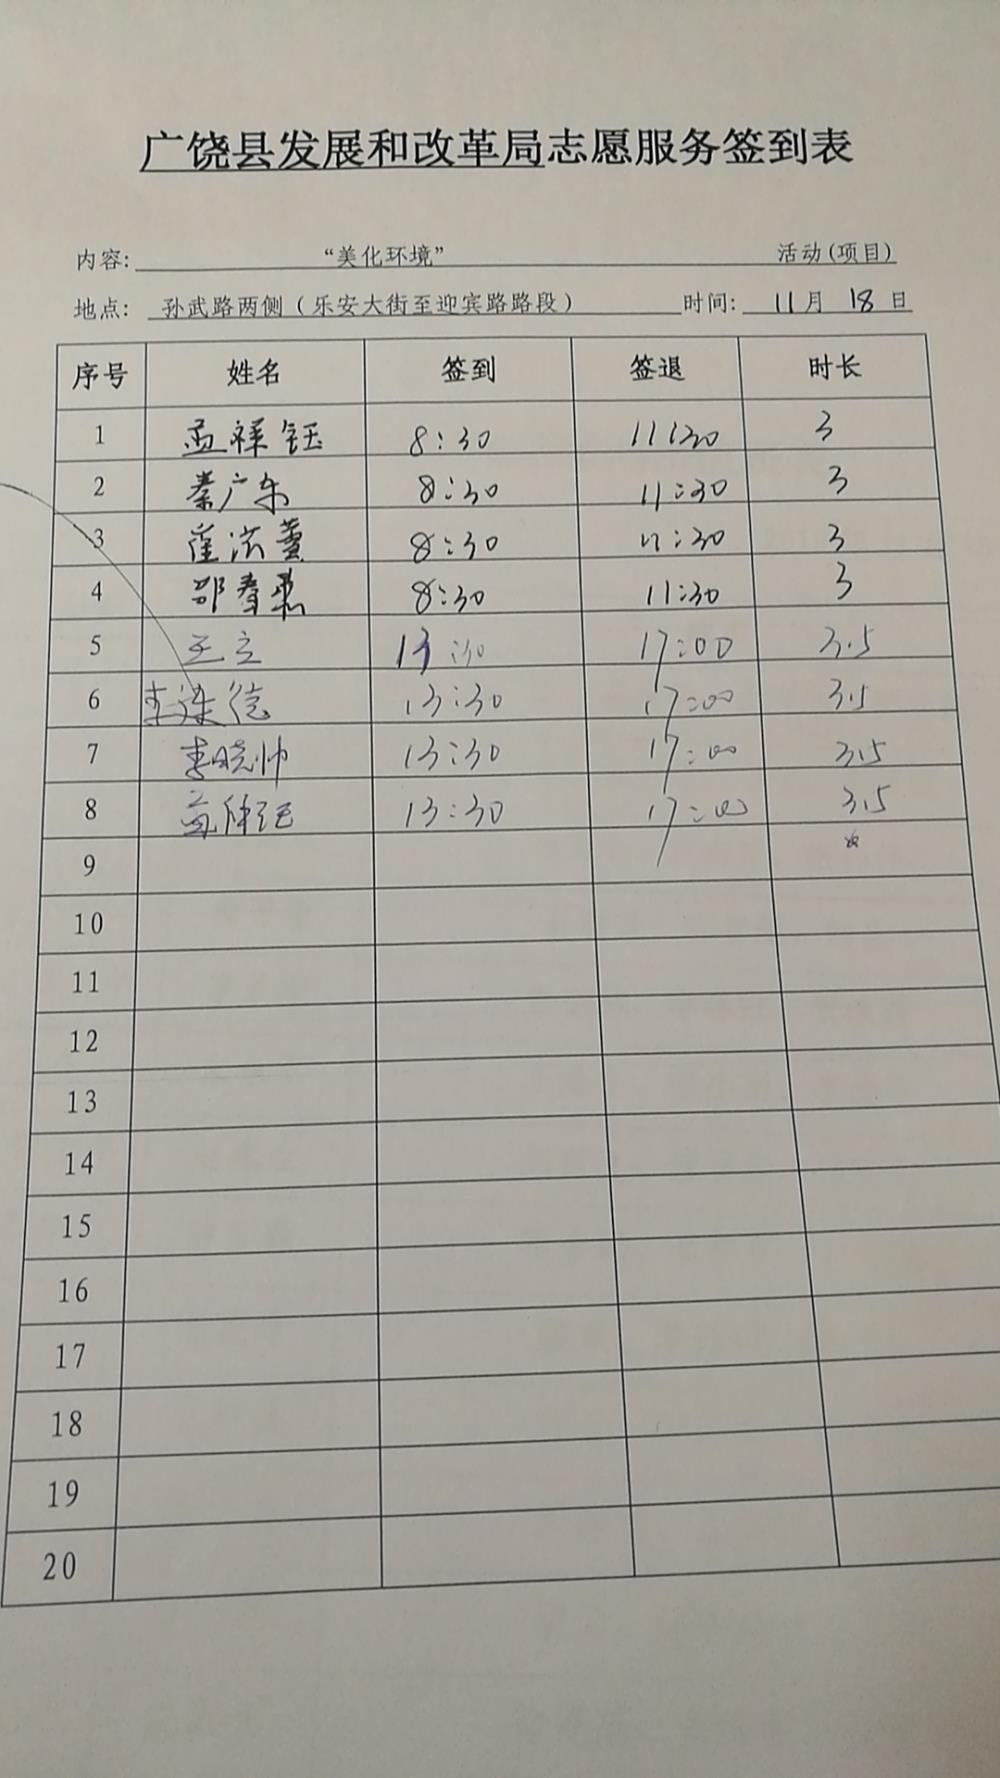 广饶县发展和改革局志愿服务签到表
内容: “美化环境” 活动(项目)
地点: 孙武路两侧（乐安大街至迎宾路路段） 时间: 11月 18日
序号 姓名 签到 签退 时长
1 孟祥钰 8:30 11:30 3
2 秦广东 8:30 11:30 3
3 8:30 11:30 3
4 8:30 11:30 3
5 王立 13:30 17:00 3.5
6 13:30 17:00 3.5
7 李晓帅 13:30 17:00 3.5
8 13:30 17:00 3.5
9
10
11
12
13
14
15
16
17
18
19
20